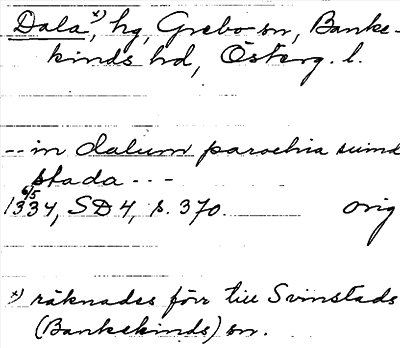 Dala x), hg, Grebo sn, Banke-
kinds hd, Österg. l.
-- in dalum parochia suind
stada - - -
6/5
1334, SD 4, s. 370. orig
x) räknades förr till Svinstads
(Bankekinds) sn.